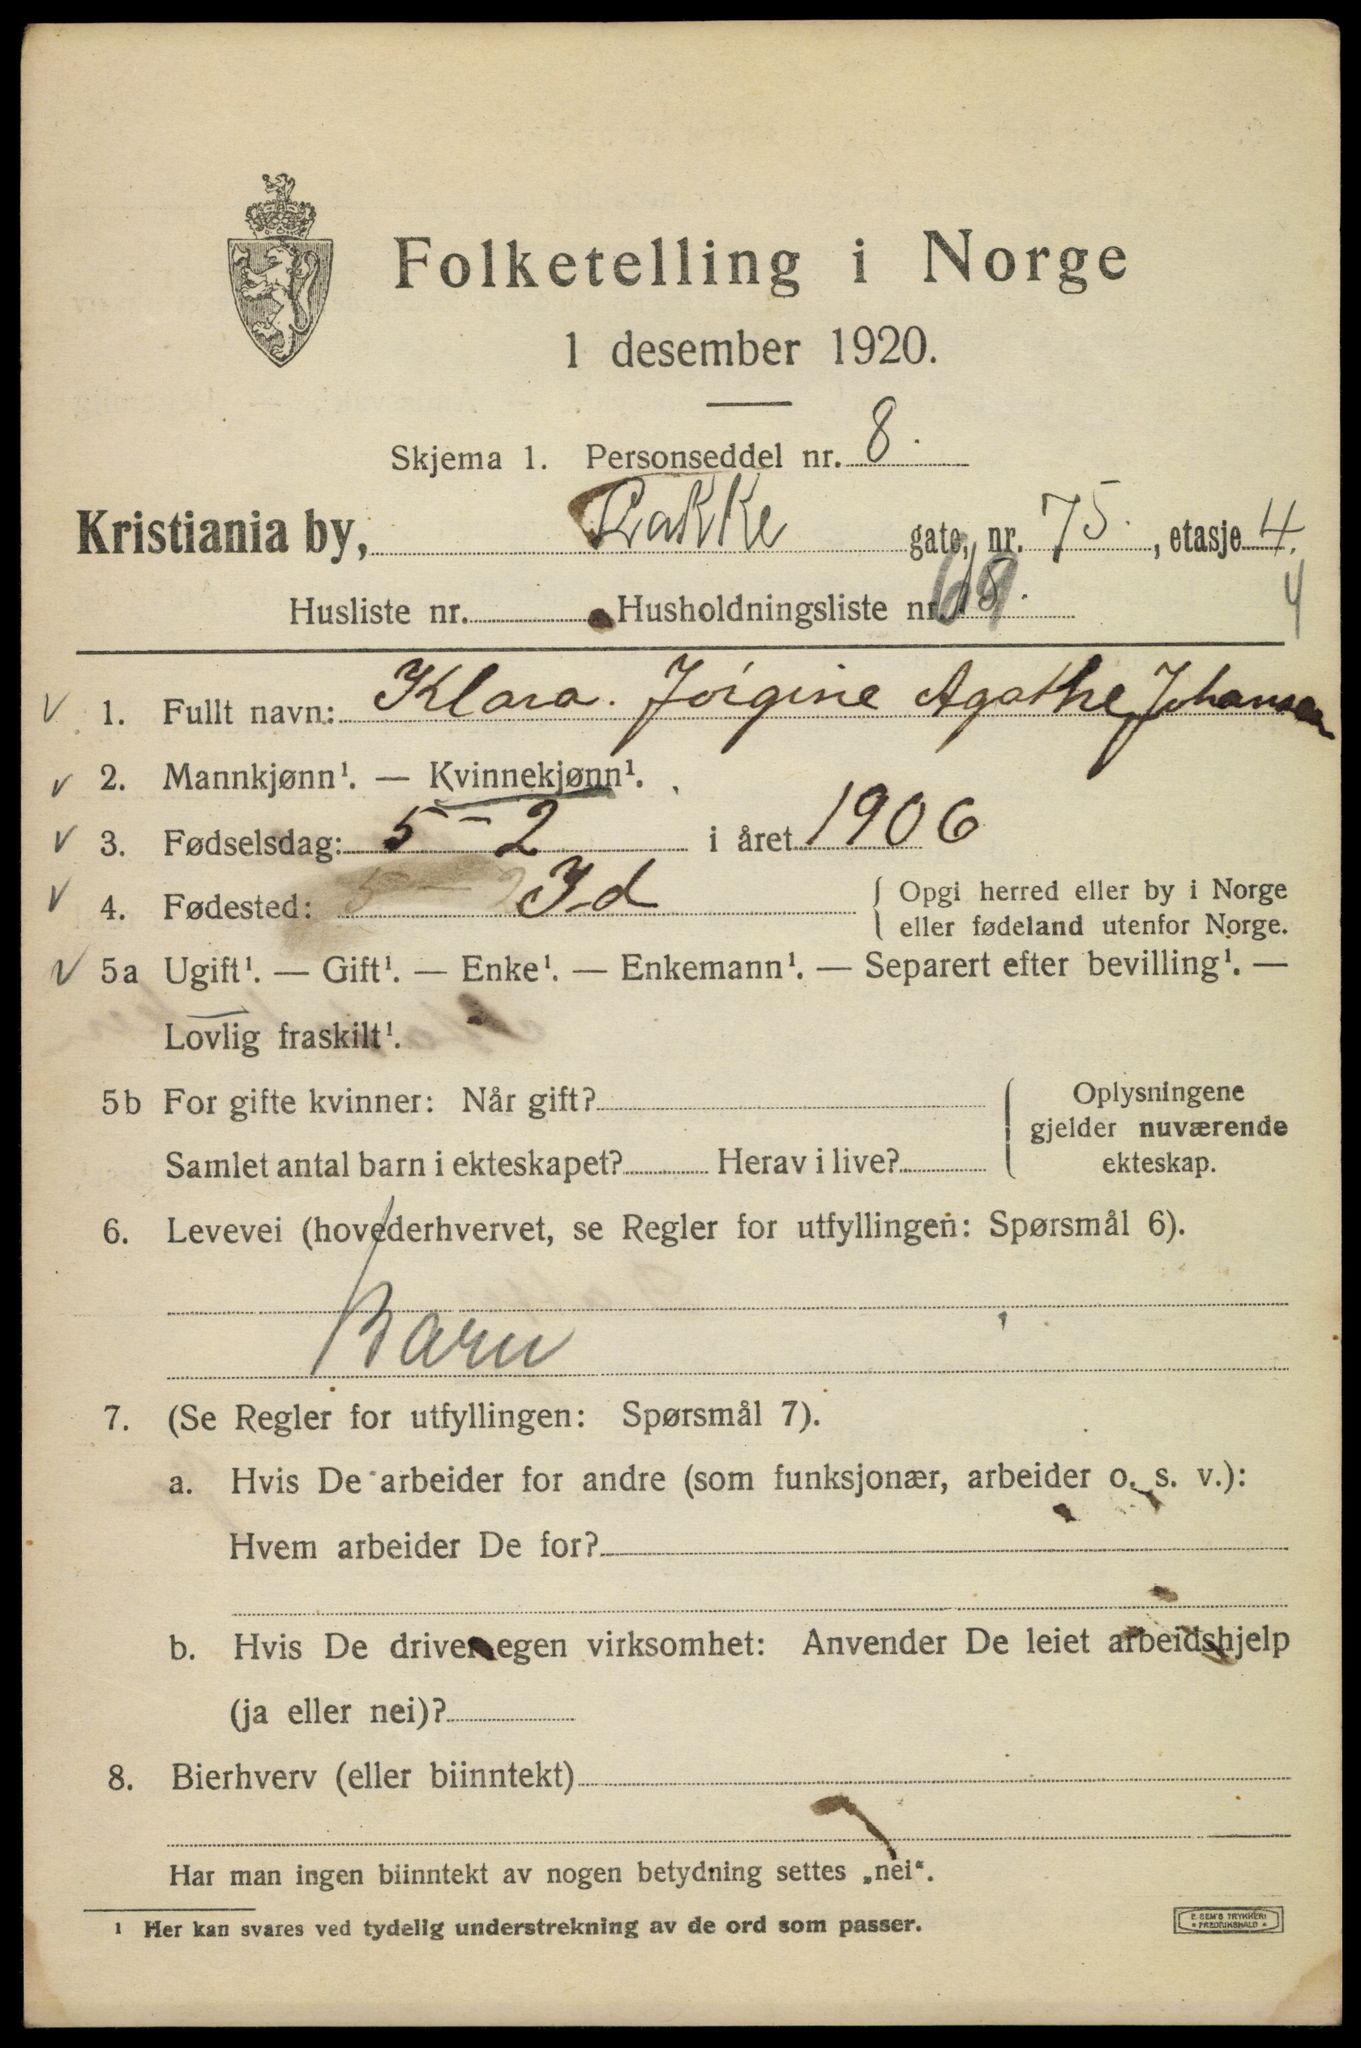 Folketelling i Norge
1 desember 1920.
Skjema 1. Personseddel nr. 8.
Kristiania by, Rakke gate, nr. 75., etasje 4.
Husliste nr. Husholdningsliste nr. 69
4
1. Fullt navn: Klara. Jørgine Agathe Johansen
2. Mannkjønn¹. — Kvinnekjønn¹.
3. Fødselsdag: 5 – 2 i året 1906
4. Fødested: 5 – 2 Id { Opgi herred eller by i Norge
eller fødeland utenfor Norge.
5a Ugift¹. — Gift¹. — Enke¹. — Enkemann¹. — Separert efter bevilling¹. —
Lovlig fraskilt¹.
5b For gifte kvinner: Når gift? { Oplysningene
gjelder nuværende
Samlet antal barn i ekteskapet? Herav i live? ekteskap.
6. Levevei (hovederhvervet, se Regler for utfyllingen: Spørsmål 6).
Barn
7. (Se Regler for utfyllingen: Spørsmål 7).
a. Hvis De arbeider for andre (som funksjonær, arbeider o. s. v.):
Hvem arbeider De for?
b. Hvis De driver egen virksomhet: Anvender De leiet arbeidshjelp
(ja eller nei)?
8. Bierhverv (eller biinntekt)
Har man ingen biinntekt av nogen betydning settes „nei“.
¹ Her kan svares ved tydelig understrekning av de ord som passer.
E. SEM'S TRYKKERI
FREDRIKSHALD